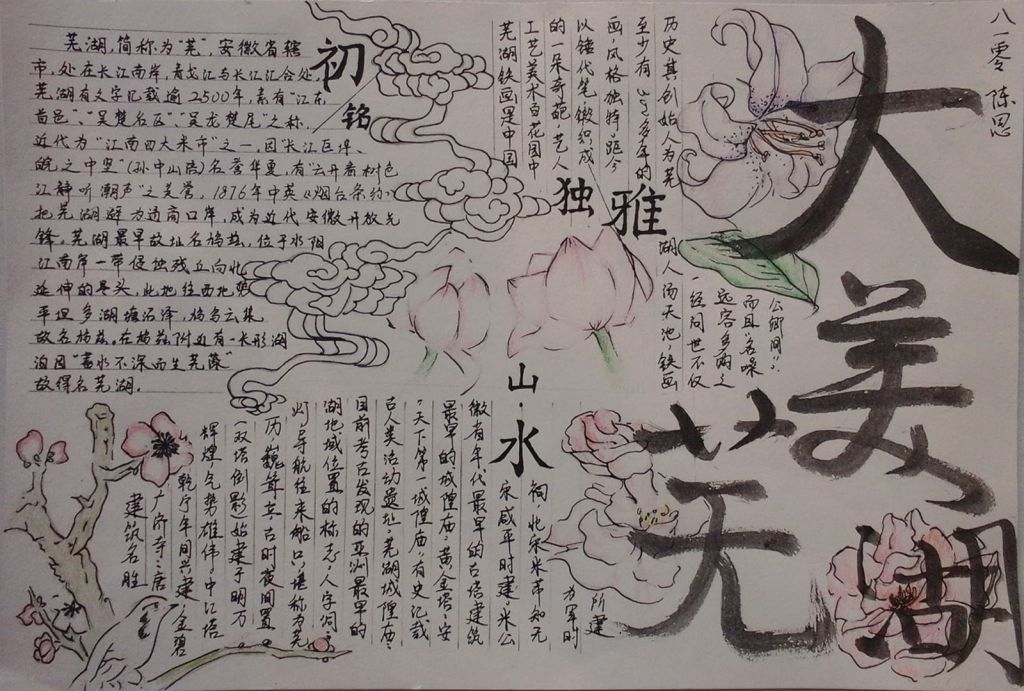 八一零 陈思
大美芜湖
初/铭
芜湖，简称为“芜”，安徽省辖
市，处在长江南岸，青弋江与长江汇合处，
芜湖有文字记载逾2500年，素有“江东
首邑”、“吴楚名区”、“吴龙楚尾”之称，
近代为“江南四大米市”之一，因“长江巨埠、
皖之中坚”（孙中山语）名誉华夏，有“云开看树色
江静听潮声”之美誉，1876年中英《烟台条约》
把芜湖辟为通商口岸，成为近代安徽开放先
锋。芜湖最早故址名鸠兹，位于水阳
江南岸一带侵蚀残丘向北
延伸的尽头，此地往西地势
平坦多湖塘沼泽，鸠鸟云集
故名鸠兹。在鸠兹附近有一长形湖
泊因“蓄水不深而生芜藻”
故得名芜湖。
独雅
芜湖铁画是中国
工艺美术百花园中
的一朵奇葩，艺人
以锤代笔锻织成
画，风格独特，距今
至少有340多年的
历史，其创始人为芜
湖人汤天池，铁画
一经问世不仅
远客多购之
而且名噪
公卿间”。
山·水
建筑名胜
广济寺：唐
乾宁年间兴建，金碧
辉煌，气势雄伟；中江塔
一双塔倒影，始建于明万
历，巍峰立，古时夜间置
灯，导航往来船口，堪称为芜
湖地域位置的标志；人字洞：
目前考古发现的亚洲最早的
古人类活动遗址；芜湖城隍庙：
“天下第一城隍庙”，有史记载
最早的城隍庙；黄金塔：安
徽省年代最早的古塔建筑
宋咸平时建；米公
祠，北宋米芾知无
为军时
所建